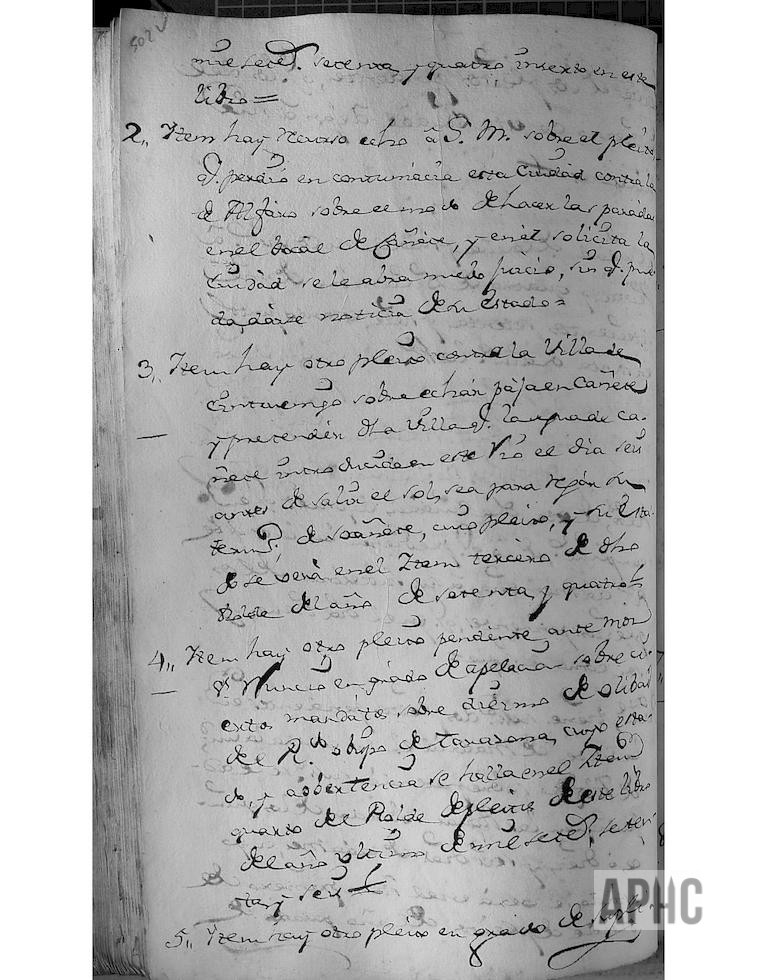 502 v
mil setecs. setenta, y quatro inserto en este
Libro =
2,, Item hay recurso echo â S. M. sobre el pleito
q. perdió en contumacia esta Ciudad contra la
de Alfaro sobre el modo de hacer las paradas
en el Bocal de Cañete, y en él solicita la
Ciudad se le abra nuebo juicio, sin q. pue
da, darse noticia de su estado =
3,, Item hay otro pleito contra la Villa de
Cintruenigo sobre echar paja en Cañete
y pretenden dha Villa q. la agua de Ca-
ñete introducida en este Rio el dia seis
antes de salir el sol, sea para regar su
termo. de Cañete, cuio pleito, y su Esta-
do se verá en el Item tercero de dho
Rolde del año de setenta, y quatro
4,, Item hay otro pleito pendiente ante Monr
or Nuncio en grado de apelacion sobre ci-
ertos mandatos sobre diezmo de olibas
del R.do obispo de Tarazona, cuyo esta-
do, y advertencia se halla en el Item
quarto del Rolde de pleitos de este Libro
del año ultimo de mil setecs. seten
ta, y seis
5,, Item hay otro pleito en grado de supli-
APHC